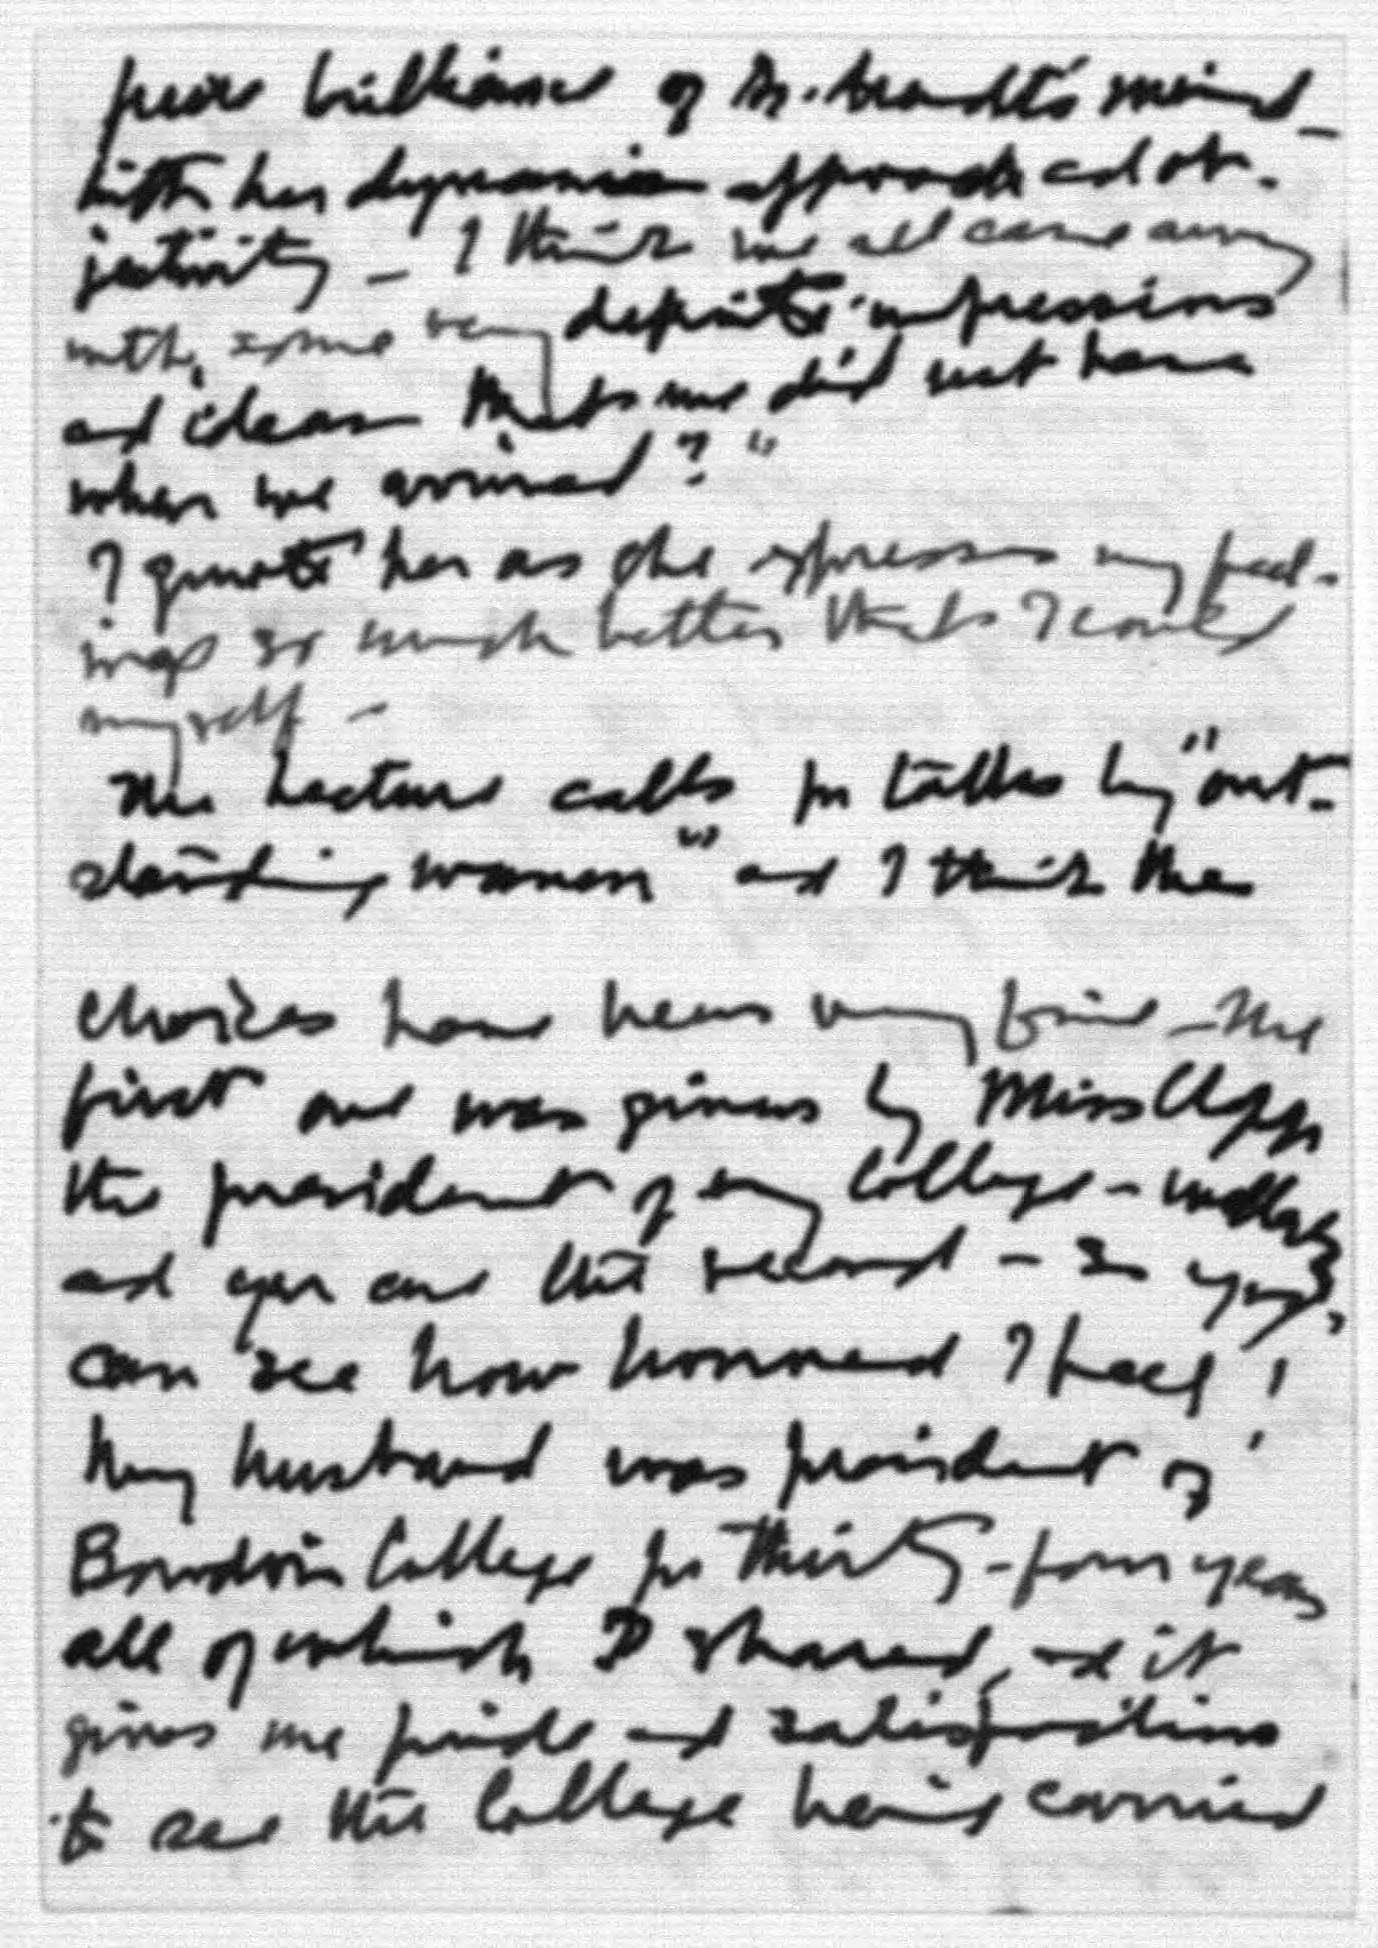 pure brilliance of Dr. Arendt's mind –
with her dynamic approach and ob-
jectivity – I think we all came away
with some very definite impressions
and ideas that we did not have
when we arrived?"
I quote her as she expresses my feel-
ings so much better than I could
myself –
The lecture calls for talks by "out-
standing women" and I think the
choices have been very fine – The
first one was given by Miss Clapp
the president of my College –
and you are the second – so you
can see how honored I feel!
My husband was president of
Bowdoin College for thirty-four years
all of which I shared, and it
gives me pride and satisfaction
to see the College being carried